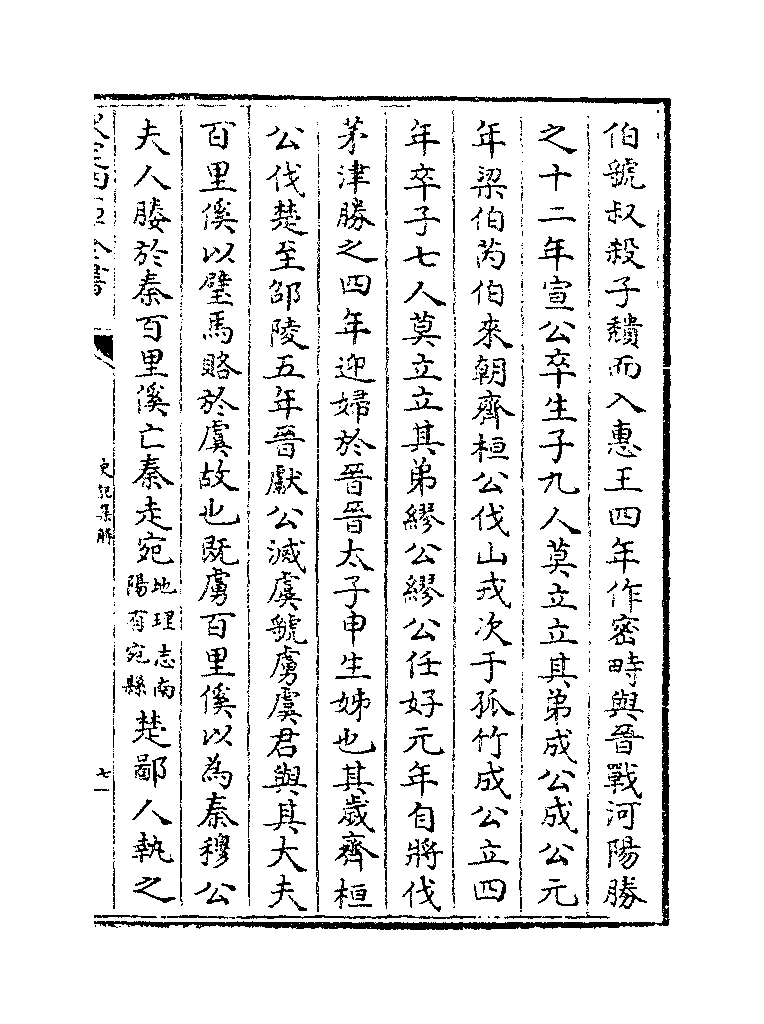 伯虢叔殺子穨而入惠王四年作密畤與晉戰河陽勝
之十二年宣公卒生子九人莫立立其弟成公成公元
年梁伯芮伯來朝齊桓公伐山戎次于孤竹成公立四
年卒子七人莫立立其弟繆公繆公任好元年自將伐
茅津勝之四年迎婦於晉晉太子申生姊也其歲齊桓
公伐楚至邵陵五年晉獻公滅虞虢虜虞君與其大夫
百里傒以璧馬賂於虞故也既虜百里傒以為秦穆公
夫人媵於秦百里傒亡秦走宛地理志南陽有宛縣楚鄙人執之
史記集解